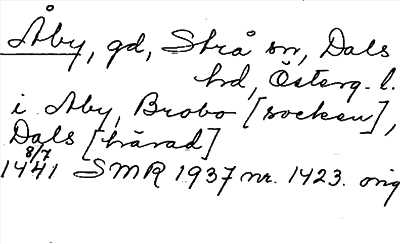 Åby, gd, Strå sn, Dals
hd, Österg. l.
i Aby, Brobo [socken],
Dals [härad]
8/7
1441 SMR 1937 nr. 1423. orig